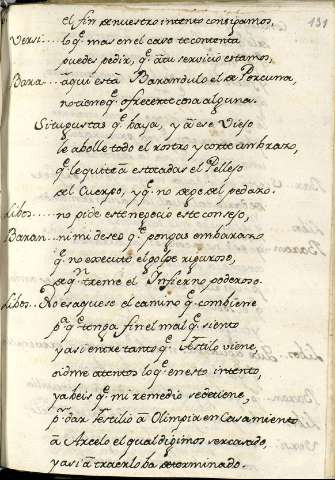 131
el fin de nuestro intento consigamos,
Versi..... lo q̃ mas en el caso te contenta
puedes pedir, q̃ a tu servicio estamos,
Bara.... aqui está Barandulo el de Porcuna,
no tiene q̃ ofrecerte cosa alguna.
Si tu gustas q̃ vaya, y a ese Viejo
le abolle todo el rostro y corte un brazo,
q̃ le quite a estocadas el Pellejo
del Cuerpo, y q̃ no dege de pedazo.
Libos..... no pide este negocio este consejo,
Baran... ni mi deseo q̃ pongas embarazo
q̃ no execute el golpe riguroso,
de qⁿ treme el Infierno poderoso.
Libos.. No es aquese el camino q̃ combiene
pᵃ q̃ tenga fin el mal q̃ siento
y asi entre tanto q̃ viene,
oidme atentos lo q̃ en esto intento,
y abeis q̃ mi remedio se detiene,
pʳ dar a Olimpia en Casamiento
a Arcelo el qual digimos ser casado,
y asi a traerlo ba determinado.